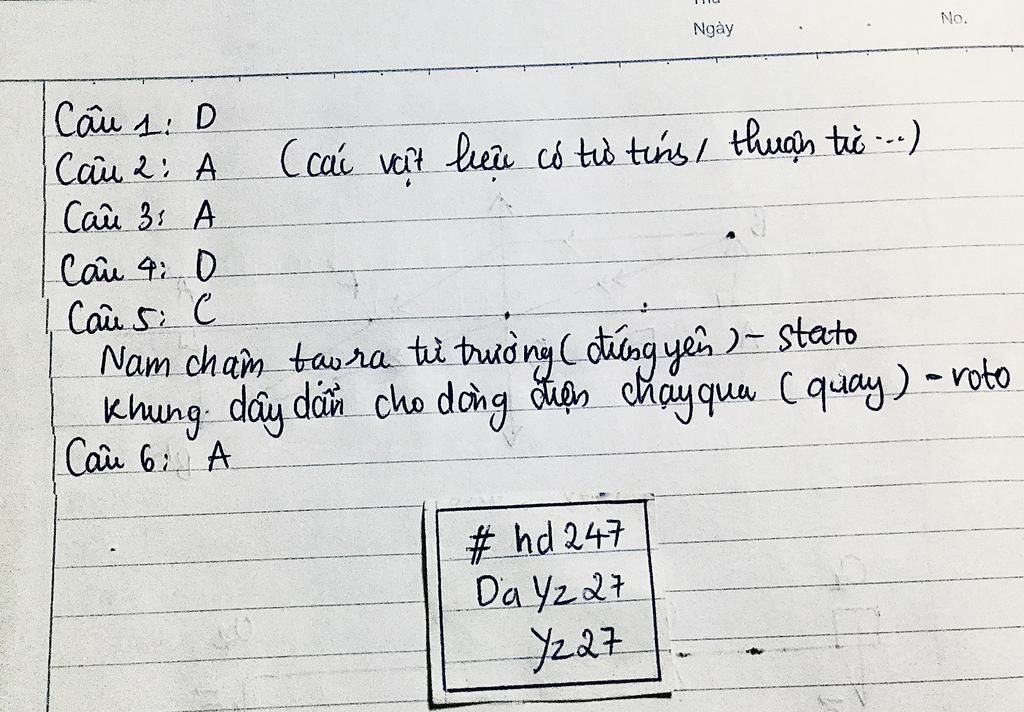 Thứ
Ngày
No.
Câu 1: D
Câu 2: A (các vật liệu có từ tính, thuận từ...)
Câu 3: A
Câu 4: D
Câu 5: C
Nam châm tạo ra từ trường (đứng yên) - stato
Khung dây dẫn cho dòng điện chạy qua (quay) - roto
Câu 6: A
# hd 247
Da Yz 27
Yz 27